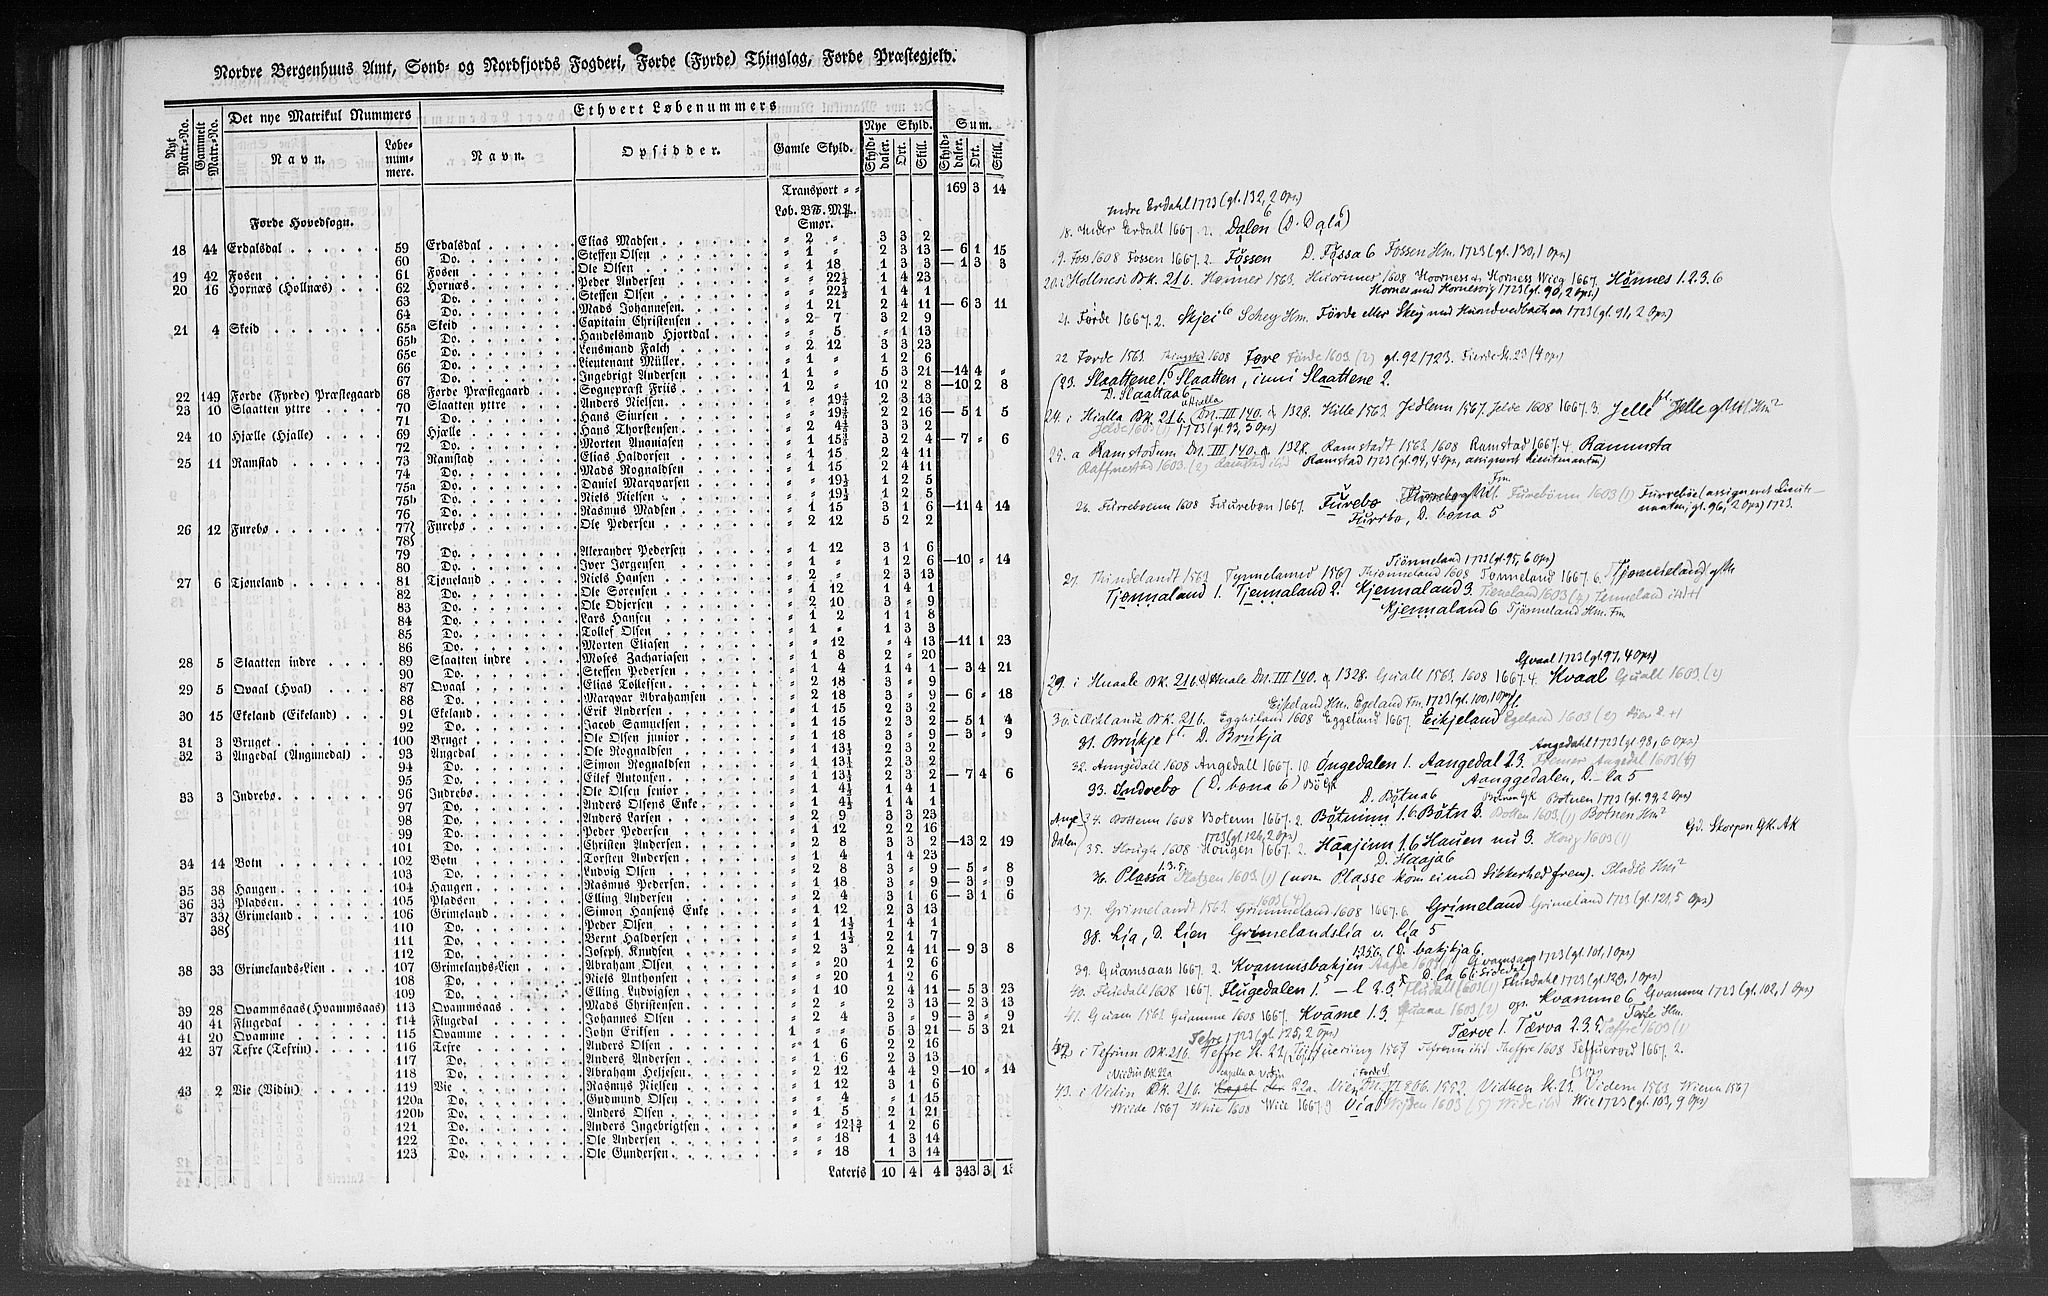 Nordre Bergenhuus Amt, Sønd- og Nordfjords Fogderi, Førde (Fyrde) Thinglag, Førde Præstegjeld.
Nyt Matr.-No. Gammelt Matr.-No. Det nye Matrikul Nummers Ethvert Løbenummers
Navn. Løbe-num-mere. Navn. Opsidder. Gamle Skyld. Nye Skyld. Sum.
Skylddaler. Ort. Skill. Skylddaler. Ort. Skill.
Transport = = 169 3 14
Førde Hovedsogn. Løb. Smør.
18 44 Erdalsdal 59 Erdalsdal Elias Madsen " 2 " 3 3 2
60 Do. Steffen Olsen " 1 " 2 3 13 — 6 1 15
19 42 Fosen 61 Fosen Ole Olsen " 1 18 1 3 3 — 1 3 3
20 16 Hornæs (Hollnæs) 62 Hornæs Peder Andersen " " 22½ 1 4 23
63 Do. Steffen Olsen " " 22½ 1 4 1
64 Do. Mads Johannesen " 1 21 2 4 11 — 6 3 11
21 4 Skeid 65a Skeid Capitain Christensen " 2 7 3 2 9
65b Do. Handelsmand Hjortdal " " 5 " 1 13
65c Do. Lensmand Falch " 2 12 3 3 23
66 Do. Lieutenant Müller " 1 " 1 2 6
67 Do. Ingebrigt Andersen 1 1 " 5 3 21 — 14 4 "
22 149 Førde (Fyrde) Præstegaard 68 Førde Præstegaard Sognepræst Friis 1 2 " 10 2 8 — 10 2 8
23 10 Slaatten yttre 70 Slaatten yttre Anders Nielsen " " 19½ 2 3 13
71 Do. Hans Siursen " " 19½ 2 2 16 — 5 1 5
24 10 Hjælle (Hjalle) 69 Hjælle Hans Thorstensen " 2 4½ 3 3 2
72 Do. Morten Ananiasen " 1 15½ 3 2 4 — 7 " 6
25 11 Ramstad 73 Ramstad Elias Haldorsen " 1 15 2 4 11
74 Do. Mads Rognaldsen " 1 15 2 4 11
75a Do. Daniel Marqvarsen " " 19½ 1 2 5
75b Do. Niels Nielsen " " 19½ 1 2 5
76 Do. Rasmus Madsen " 1 15 3 1 6 — 11 4 14
26 12 Furebø 77 78 Furebø Ole Pedersen " 2 12 5 2 2
79 Do. Alexander Pedersen " 1 12 3 1 6
80 Do. Iver Jørgensen " 1 " 1 2 6 — 10 " 14
27 6 Tjøneland 81 Tjøneland Niels Hansen " 2 " 2 3 13
82 Do. Ole Sørensen " 1 12 1 4 1
83 Do. Ole Odjersen " 2 10 3 " 9
84 Do. Lars Hansen " 1 2 1 1 8
85 Do. Tollef Olsen " 1 " 1 3 3
86 Do. Morten Eliasen " " 12 " 4 13 — 11 1 23
28 5 Slaatten indre 89 Slaatten indre Moses Zachariasen " 1 8 2 " 20
90 Do. Steffen Pedersen " 1 4 1 4 1 — 3 4 21
29 5 Qvaal (Hval) 87 Qvaal Elias Tollefsen " 2 18 3 " 9
88 Do. Marqvar Abrahamsen " 2 18 3 " 9 — 6 " 18
30 15 Ekeland (Eikeland) 91 Ekeland Erik Andersen " 1 15 2 3 2
92 Do. Jacob Samuelsen " 1 15 2 3 2 — 5 1 4
31 3 Bruget 100 Bruget Ole Olsen junior " 1 18 3 " 9 — 3 " 9
32 3 Angedal (Angunedal) 93 Angedal Ole Rognaldsen " 1 13½ 2 3 2
94 Do. Simon Rognaldsen " 1 13½ 2 3 2
95 Do. Eilef Antonsen " 1 13½ 2 3 2 — 7 4 6
33 3 Indrebø 96 Indrebø Ole Olsen senior " 1 4½ 1 4 1
97 Do. Anders Olsens Enke " 1 4½ 1 4 1
98 Do. Anders Larsen " 2 9 3 3 23
99 Do. Peder Pedersen " 1 12 2 2 16
101 Do. Christen Andersen " 2 8 3 3 2 — 13 2 19
34 14 Botn 102 Botn Torsten Andersen " 1 4 1 4 23
103 Do. Ludvig Olsen " 2 8 3 " 9 — 5 " 8
35 38 Haugen 104 Haugen Rasmus Pedersen " 1 18 3 " 9 — 3 " 9
36 33 Pladsen 105 Pladsen Elling Andersen " 2 4 3 1 6 — 3 1 6
37 33 38 Grimeland 106 Grimeland Simon Hansens Enke " 1 12 2 3 13
110 Do. Peder Olsen " 1 1½ 1 4 1
111 Do. Bernt Haldorsen " 1 1½ 2 1 7
112 Do. Joseph Knudsen " 2 3 2 4 11 — 9 3 8
38 33 Grimelands-Lien 107 Grimelands-Lien Abraham Olsen " " 20 1 2 6
108 Do. Niels Anthonsen " " 20 1 2 6
109 Do. Elling Ludvigsen " 1 10 2 4 11 — 5 3 23
39 28 Qvammsaas (Hvammsaas) 113 Qvammsaas Mads Christensen " 2 " 2 3 13 — 2 3 13
40 41 Flugedal 114 Flugedal Johannes Olsen " 2 4 3 " 9 — 3 " 9
41 20 Qvamme 115 Qvamme John Eriksen 1 " " 5 3 21 — 5 3 21
42 37 Tefre (Tefrin) 116 Tefre Anders Olsen " 1 6 2 2 16
117 Do. Anders Andersen " 1 6 2 3 13
118 Do. Abraham Heljesen " 2 12 4 4 9 — 10 " 14
43 2 Vie (Vidin) 119 Vie Rasmus Nielsen " 1 12 3 1 6
120a Do. Gudmund Olsen " " 4 " 1 15
120b Do. Anders Olsen " 1 5 2 1 21
121 Do. Anders Ingebrigtsen " " 12 1 2 6
122 Do. Ole Andersen " " 18 1 3 14
123 Do. Ole Gundersen " " 18 1 3 14
Lateris 10 4 4 343 3 13
Indre Erdahl 1723 (gl. 132, 2 Ops)
18. Inder Erdall 1667. 2. Dalen 6 (D. Dala)
19. Foss 1608 Fossen 1667. 2. Fossen D. Fossa 6 Fossen Hm. 1723 (gl. 130, 1 Ops)
20. i Hollnesi BK. 216. Honnes 1563. 1608 Horness Wiig 1667. Hönnes 1. 2. 3. 6
Hornes med Hornesvig 1723 (gl. 90, 2 Ops)
21. Førde 1667. 2. Skjei 6 Scheg Hm. Førde eller Skeig med 1723 (gl. 91, 2 Ops)
22 Førde 1563 1608 Føre Förde 1603 (2) gl. 92 1723.
(23. Slaattene 1. 6 Slaatten, inni Slaattene 2.
D. Slaattaa 6
24. i Hialla BK. 216. DN. III 140. 1328. Hille 1563. Jedlenn 1567. Jelde 1608 1667. 3. Jelle
Jelde 1603 (1) 1723 (gl. 93, 3 Ops)
25. a Ramstodum DN. III 140. 1328. Ramstadt 1563 1608 Ramstad 1667. 4. Rammsta
Raffnestad 1603. (2) Ramstad 1723 (gl. 94, 4 Ops, assigneret Lieutenanten)
26. Furreboenn 1608 Fuurebøn 1667. Furebø Furebönn 1603 (1) Furrebøe (assigneret Lieute-
Furrbø, D. bøna 5 nanten; gl. 96, 2 Ops) 1723.
Tiønneland 1723 (gl. 95, 6 Ops)
27. Thindelandt 1563 Tynneland 1567 Thiønneland 1608 Tønneland 1667. 6.
Tjennaland 1. Tjennaland 2. Kjennaland 3. Tieneland 1603 (4)
Kjennaland 6 Tjønneland Hm. Fm
Qvaal 1723 (gl. 97, 4 Ops)
29. i Huaale BK. 216. Huale DN. III 140. 1328. Quall 1563. 1608 1667. 4. Kvaal Quall 1603 (4)
Eikeland Hm. Egeland Fm. 1723 (gl. 100, 1 Ops)
30. i Eiklande BK. 216. Eggheland 1608 Eggeland 1667. Eikjeland Egeland 1603 (2)
31. Brukje D. Brukja
Angedahl 1723 (gl. 98, 6 Ops)
32. Anngedall 1608 Angedall 1667. 10. Öngedalen 1. Aangedal 2. 3. Angedal 1603 (4)
33. Indrebø (D. bøna 6) Bö GK Aanggedalen, D. — la 5
D. Botna 6 Botnen GK Botnen 1723 (gl. 99, 2 Ops)
Ange- dalen 34. Bottenn 1608 Botenn 1667. 2. Botninn 1. 6. Botn 3. Botten 1603. (1) Botnen Hm²
1723 (gl. 126, 2 Ops) Gd. Skorpen GK. AK
35. Hough 1608 Hougen 1667. 2. Haajinn 1. 6 Hauen nu 3. Houg 1603 (1)
D. Haaja 6
36. Plassa 1. 3. 5. Platzen 1603 (1) (nom. Plasse kom ei med Sikkerhed frem). Pladse Hm²
37. Grimelandt 1563. Grimmeland 1608 1667. 6. Grimeland Grimeland 1723 (gl. 121, 5 Ops)
38. Lia, D. Lien Grimelandslia v. Lia 5
1356. (D. bakjkja 6
39. Quamsaas 1667. 2. Kvammsbakjen Qvamsaas 1723 (gl. 101, 1 Ops)
40. Fluedall 1608 1667. Flugedalen 1. 5 — l 2. 3. Fludall 1603 (1) Fluedahl 1723 (gl. 129, 1 Ops)
41. Quam 1563. Quamme 1608 1667. Kvāme 1. 3. Quame 1603 (2) og Kvamme 6 Qvamme 1723 (gl. 102, 1 Ops)
Tefre 1723 (gl. 125, 2 Ops) Tærve 1. Tærva 2. 3. 5. Teffre 1603 (1)
42 i Tefrinn BK. 216. Teffre St. 22, 1567 Theffre 1608 1667. 2.
43. i Vidin BK. 216. 22a. DN. VI 806. 1552. Vidhen St. 21. Videnn 1563. Wienn 1567
Wiide 1567 Wiie 1608 Wiie 1667. 9 Via Wijden 1603 (5) Wie 1723 (gl. 103, 9 Ops)